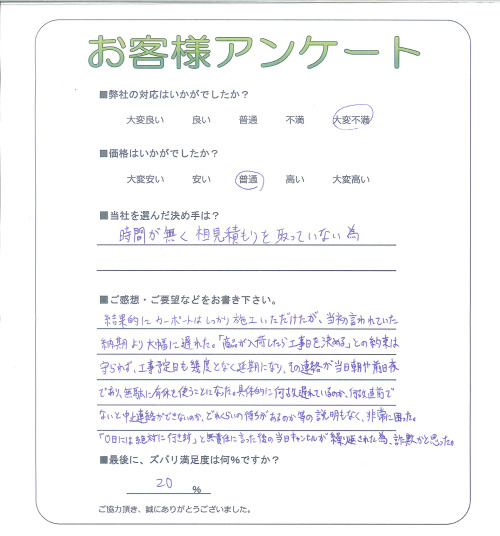 お客様アンケート
■弊社の対応はいかがでしたか？
大変良い 良い 普通 不満 大変不満
■価格はいかがでしたか？
大変安い 安い 普通 高い 大変高い
■当社を選んだ決め手は？
時間が無く相見積もりを取っていない為
■ご感想・ご要望などをお書き下さい。
結果的にカーポートはしっかり施工いただけたが、当初言われていた
納期より大幅に遅れた。「商品が入荷したら工事日を決める」との約束は
守られず、工事予定日も幾度となく延期になり、その連絡が当日朝や前日夜
であり、無駄に有休を使うことになった。具体的に何故遅れているのか、何故直前で
ないと中止連絡ができないのか、どれくらいの待ちがあるのか等の説明もなく、非常に困った。
「○日には絶対に行きます」と無責任に言った後の当日キャンセルが繰り返された為、詐欺かと思った。
■最後に、ズバリ満足度は何％ですか？
20 %
ご協力頂き、誠にありがとうございました。